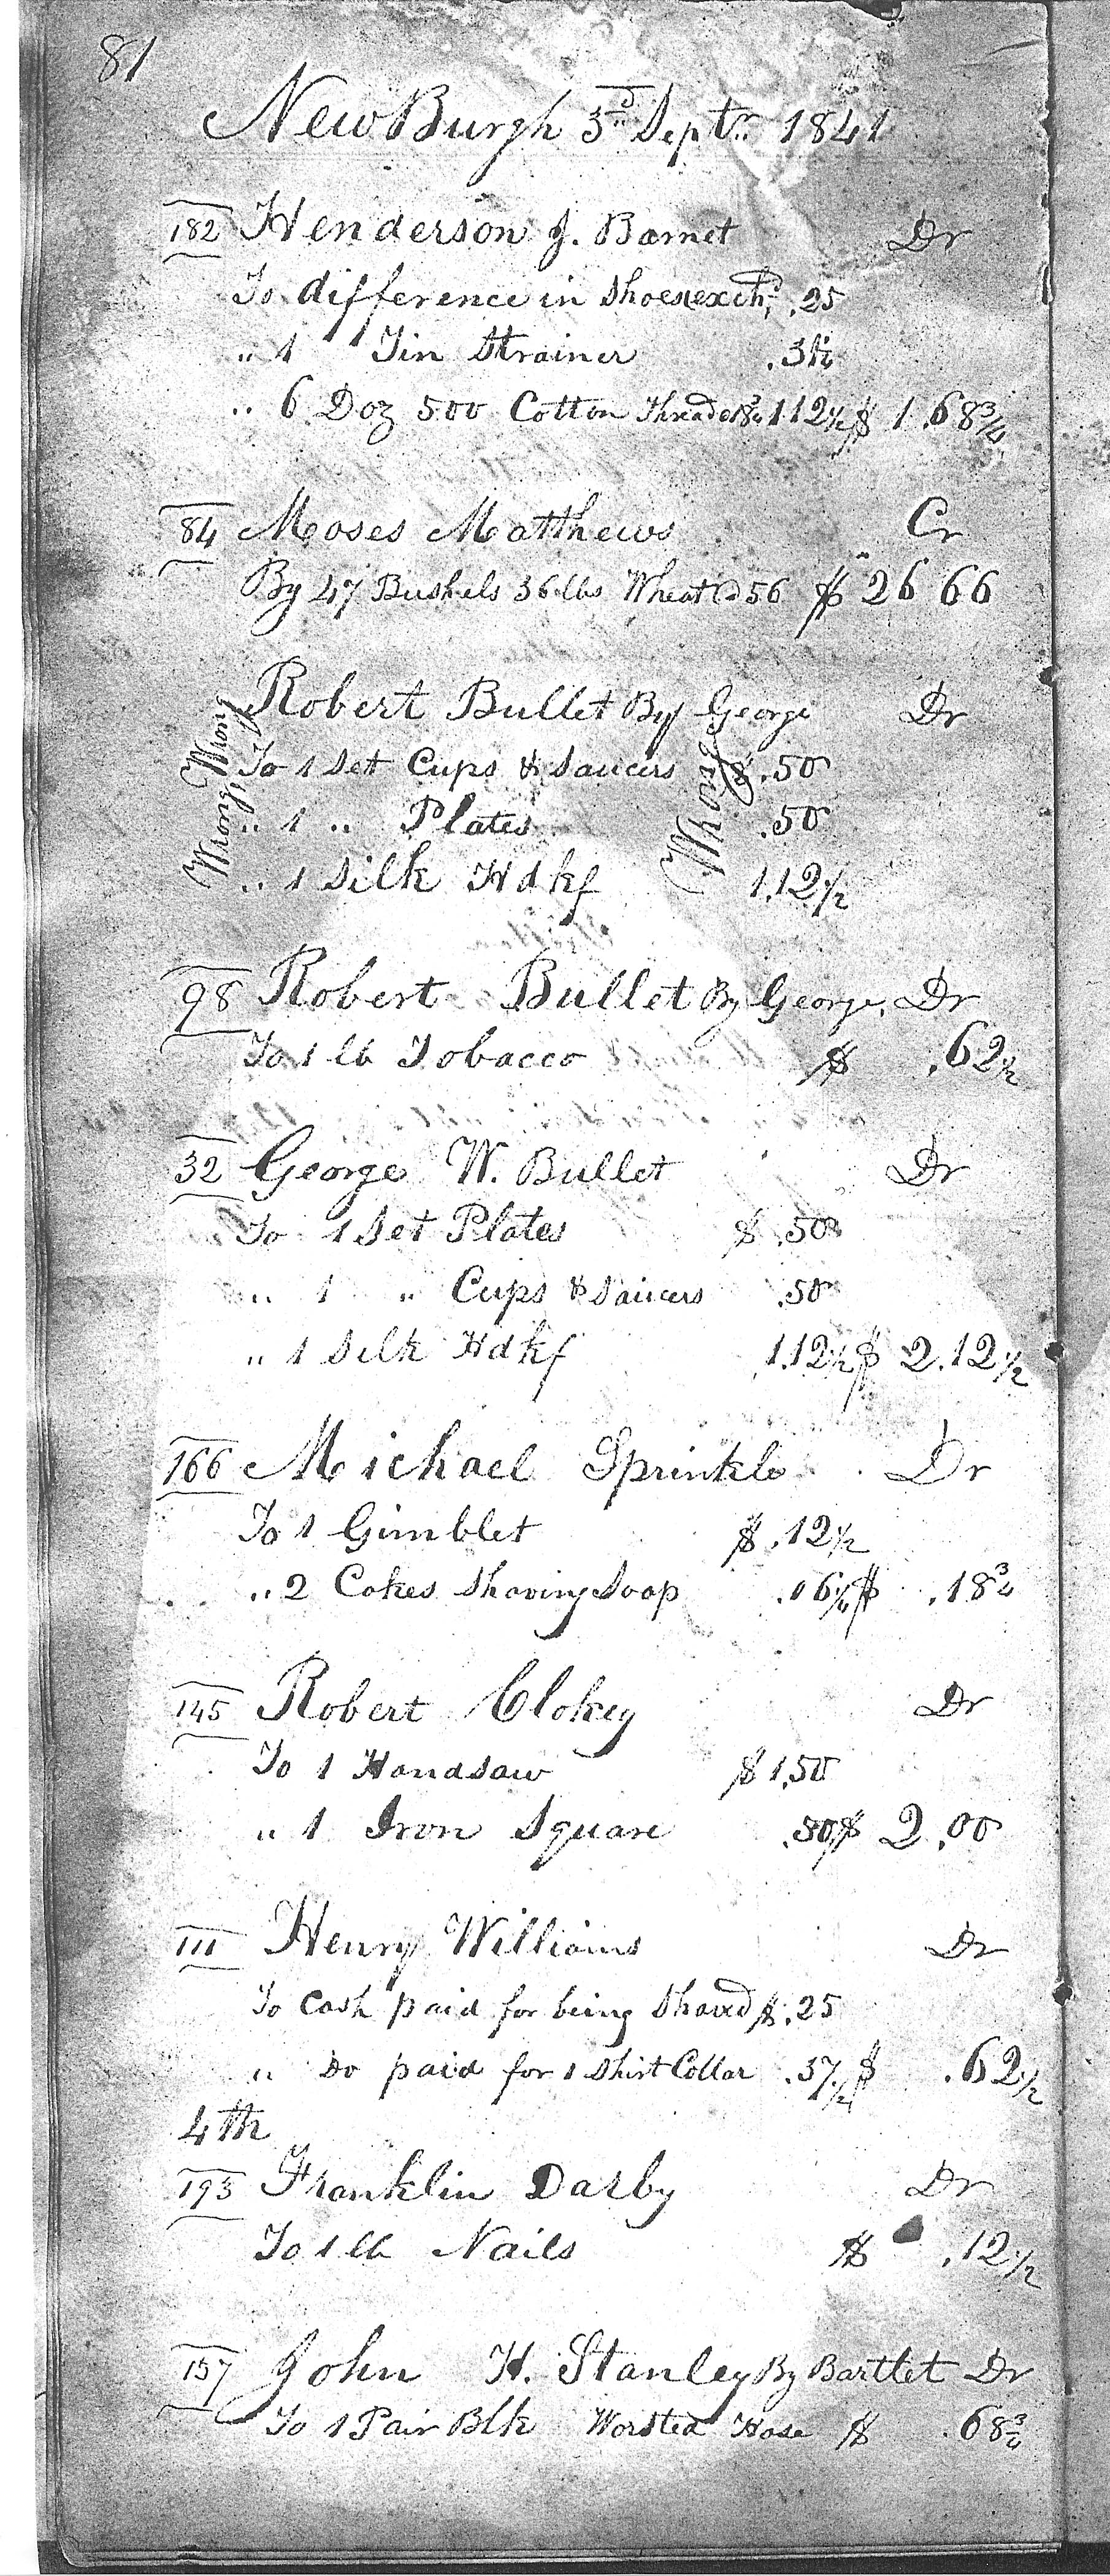 81
NewBurgh 3d Septr 1841
182 Henderson J. Barnet Dr
To difference in Shoes exchd, .25
" 1 Tin Strainer .31¼
" 6 Doz 500 Cotton Thread @18¾ 1.12½ $ 1.68¾
84 Moses Matthews Cr
By 47 Bushels 36 lbs Wheat @ 56 $ 26 66
Robert Bullet By George Dr
To 1 Set Cups & Saucers $ .50
" 1 " Plates .50
" 1 Silk Hdkf 1.12½
Wrong Wrong
Wrong
98 Robert Bullet By George. Dr
To 1 lb Tobacco $ .62½
32 George W. Bullet Dr
To 1 Set Plates $ .50
" 1 " Cups & Saucers .50
" 1 Silk Hdkf 1.12½ $ 2.12½
166 Michael Sprinkle Dr
To 1 Gimblet $ .12½
" 2 Cakes Shaving Soap .06¼ $ .18¾
145 Robert Clokey Dr
To 1 Handsaw $ 1.50
" 1 Iron Square .50 $ 2.00
111 Henry Williams Dr
To Cash paid for being Shaved $ .25
" Do paid for 1 Shirt Collar .37½ $ .62½
4th
193 Franklin Darby Dr
To 1 lb Nails $ .12½
157 John H. Stanley By Bartlet Dr
To 1 Pair Blk Worsted Hose $ .68¾